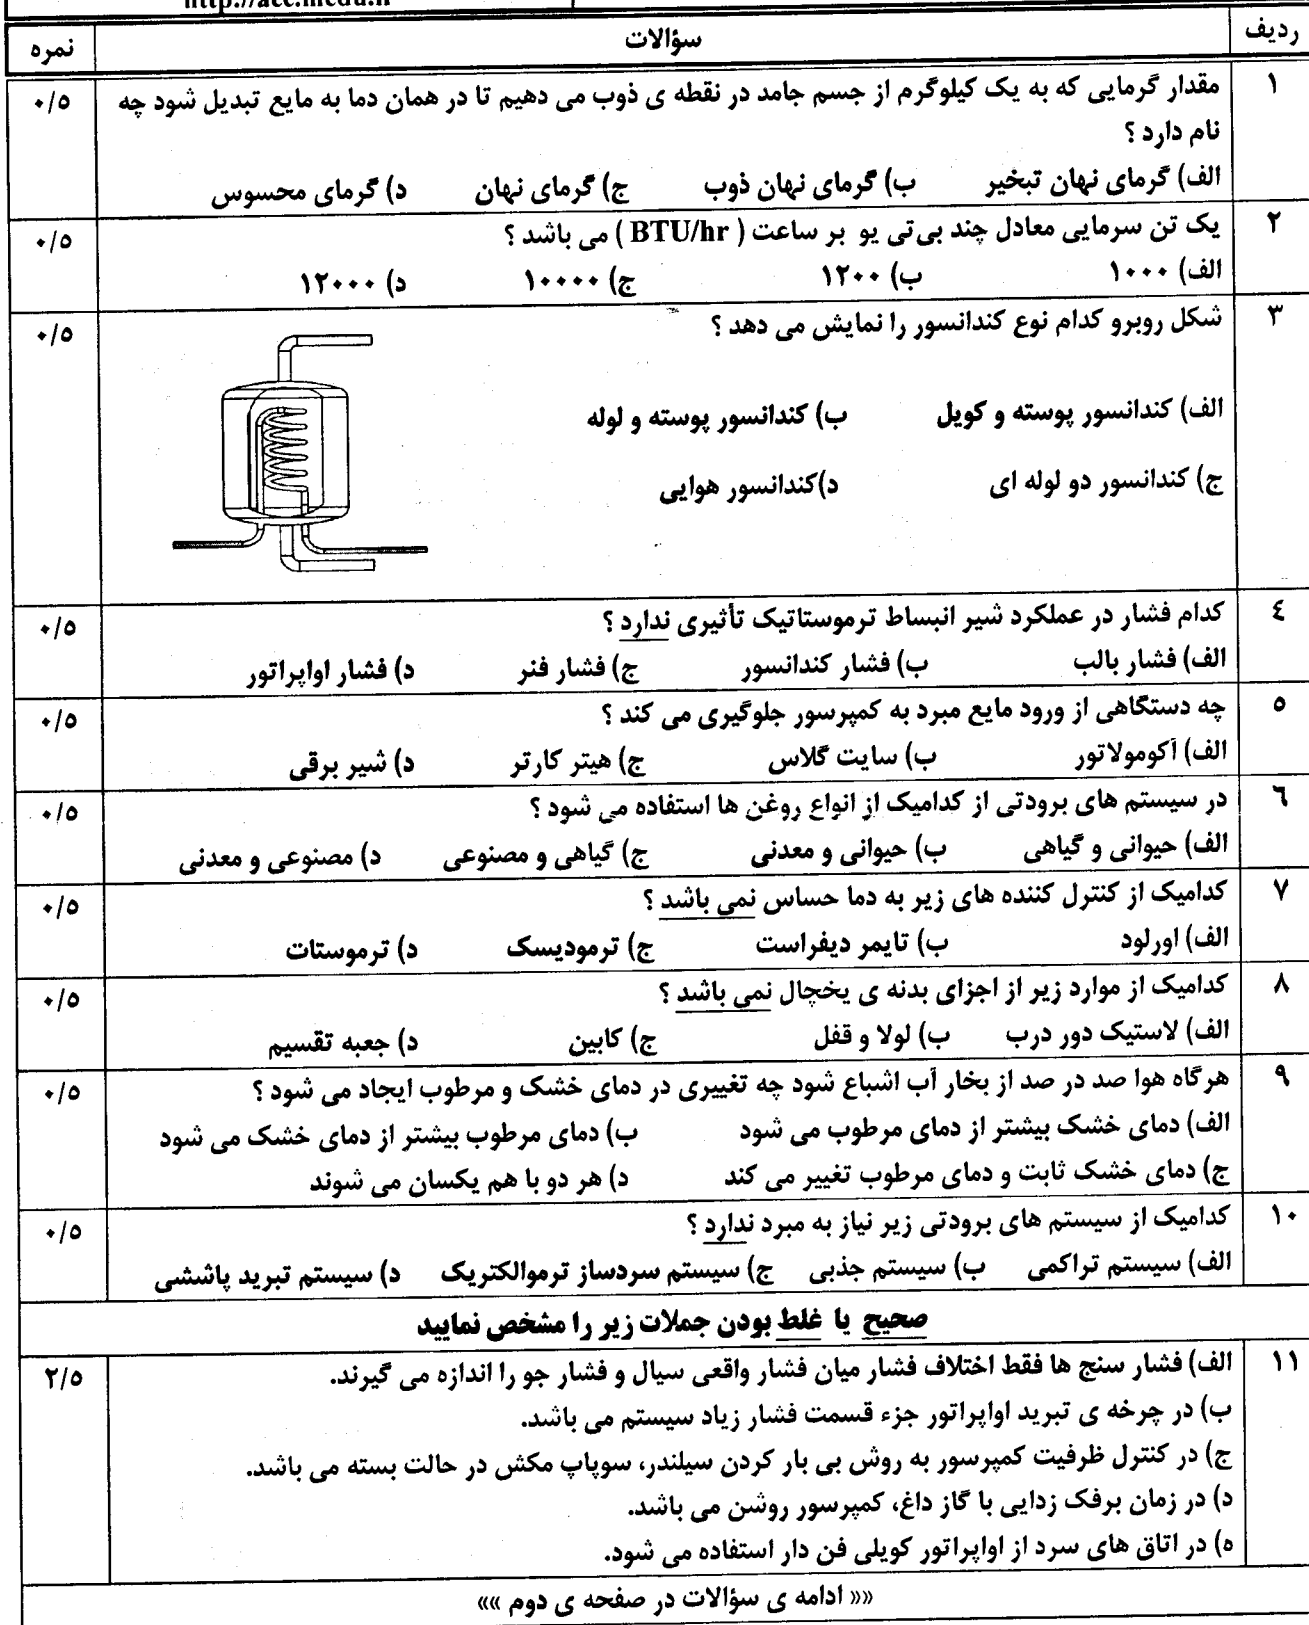 http://aee.medu.ir
ردیف سؤالات نمره
۱ مقدار گرمایی که به یک کیلوگرم از جسم جامد در نقطه ی ذوب می دهیم تا در همان دما به مایع تبدیل شود چه ۰/۵
نام دارد ؟
الف) گرمای نهان تبخیر ب) گرمای نهان ذوب ج) گرمای نهان د) گرمای محسوس
۲ یک تن سرمایی معادل چند بی‌تی یو بر ساعت ( BTU/hr ) می باشد ؟ ۰/۵
الف) ۱۰۰۰ ب) ۱۲۰۰ ج) ۱۰۰۰۰ د) ۱۲۰۰۰
۳ شکل روبرو کدام نوع کندانسور را نمایش می دهد ؟ ۰/۵
الف) کندانسور پوسته و کویل ب) کندانسور پوسته و لوله
ج) کندانسور دو لوله ای د)کندانسور هوایی
٤ کدام فشار در عملکرد شیر انبساط ترموستاتیک تأثیری ندارد ؟ ۰/۵
الف) فشار بالب ب) فشار کندانسور ج) فشار فنر د) فشار اواپراتور
۵ چه دستگاهی از ورود مایع مبرد به کمپرسور جلوگیری می کند ؟ ۰/۵
الف) آکومولاتور ب) سایت گلاس ج) هیتر کارتر د) شیر برقی
٦ در سیستم های برودتی از کدامیک از انواع روغن ها استفاده می شود ؟ ۰/۵
الف) حیوانی و گیاهی ب) حیوانی و معدنی ج) گیاهی و مصنوعی د) مصنوعی و معدنی
۷ کدامیک از کنترل کننده های زیر به دما حساس نمی باشد ؟ ۰/۵
الف) اورلود ب) تایمر دیفراست ج) ترمودیسک د) ترموستات
۸ کدامیک از موارد زیر از اجزای بدنه ی یخچال نمی باشد ؟ ۰/۵
الف) لاستیک دور درب ب) لولا و قفل ج) کابین د) جعبه تقسیم
۹ هرگاه هوا صد در صد از بخار آب اشباع شود چه تغییری در دمای خشک و مرطوب ایجاد می شود ؟ ۰/۵
الف) دمای خشک بیشتر از دمای مرطوب می شود ب) دمای مرطوب بیشتر از دمای خشک می شود
ج) دمای خشک ثابت و دمای مرطوب تغییر می کند د) هر دو با هم یکسان می شوند
۱۰ کدامیک از سیستم های برودتی زیر نیاز به مبرد ندارد ؟ ۰/۵
الف) سیستم تراکمی ب) سیستم جذبی ج) سیستم سردساز ترموالکتریک د) سیستم تبرید پاششی
صحیح یا غلط بودن جملات زیر را مشخص نمایید
۱۱ الف) فشار سنج ها فقط اختلاف فشار میان فشار واقعی سیال و فشار جو را اندازه می گیرند. ۲/۵
ب) در چرخه ی تبرید اواپراتور جزء قسمت فشار زیاد سیستم می باشد.
ج) در کنترل ظرفیت کمپرسور به روش بی بار کردن سیلندر، سوپاپ مکش در حالت بسته می باشد.
د) در زمان برفک زدایی با گاز داغ، کمپرسور روشن می باشد.
ه) در اتاق های سرد از اواپراتور کویلی فن دار استفاده می شود.
«« ادامه ی سؤالات در صفحه ی دوم »»